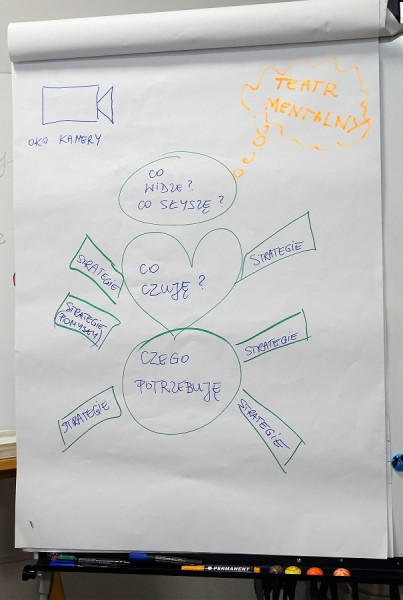 TEATR
MENTALNY
OKO KAMERY
CO
WIDZĘ?
CO SŁYSZĘ?
STRATEGIE
STRATEGIE
CO
CZUJĘ?
STRATEGIE
(POMYSŁY)
STRATEGIE
CZEGO
POTRZEBUJĘ
STRATEGIE
STRATEGIE
PERMANENT